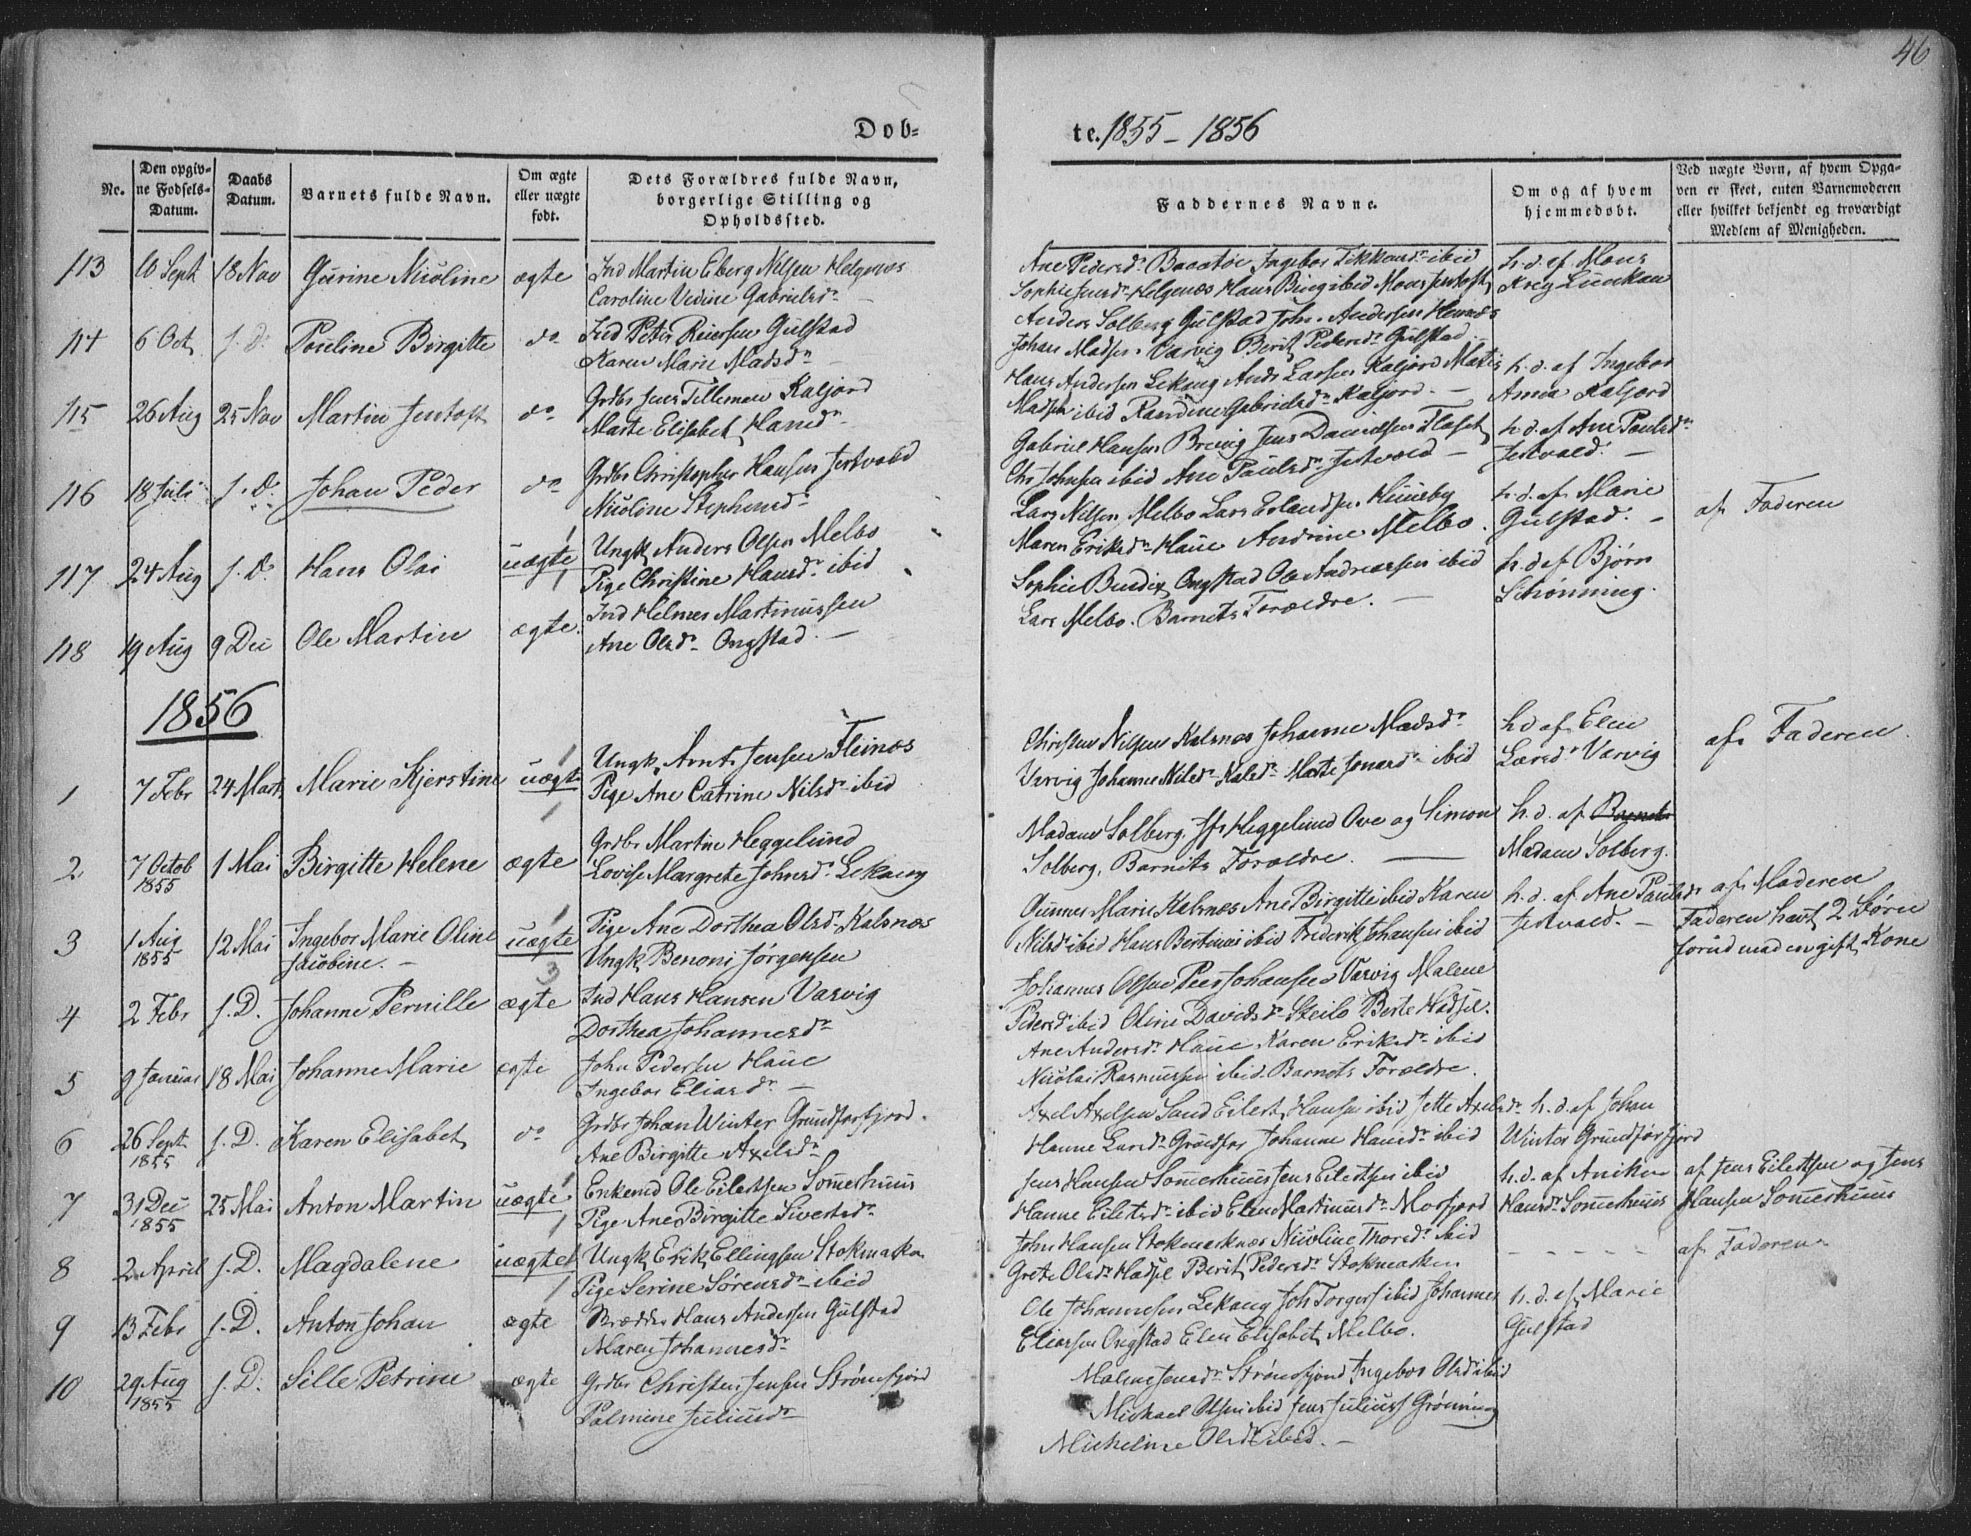 46
Døb-
te. 1855 - 1856
Nr.
Den opgiv-
ne Fødsels-
Datum.
Daabs
Datum.
Barnets fulde Navn.
Om ægte
eller uægte
født.
Dets Forældres fulde Navn,
borgerlige Stilling og
Opholdssted.
Faddernes Navne.
Om og af hvem
hjemmedøbt.
Ved uægte Børn, af hvem Opga-
ven er skeet, enten Barnemoderen
eller hvilket bekjendt og troværdigt
Medlem af Menigheden.
113 10 Sept 18 Nov Gurine Nicoline ægte Ind Martin Eberg Nilsen Helgenæs
Caroline Vidine Gabrielsdr
Ane Pedersdr Ingebor ibid
Sophie Jensdr Helgenæs Hans ibid Mons Jentoft
h.d. af Mons
Krey
114 6 Oct s.D. Pauline Birgitte do Ind Peter Reiersen Gulstad
Karen Marie Madsdr
Anders Solberg Gulstad John Andersen
Johan Madsen Varvig Berit Pedersdr Gulstad
115 26 Aug 25 Nov Martin Jentoft do Grdbr Jens Tillemen Kaljord
Marte Elisabet Hansdr
Hans Andersen Lekang Ands Larsen Kaljord
Madsen ibid Randine Gabrielsdr Kaljord
h.d. af Ingebor
Anna Kaljord
116 18 Juli s.D. Johan Peder do Grdbr Christopher Hansen Jestvold
Nicoline Stephensdr
Gabriel Hansen Jens Danielsen
Chr Johnsen ibid Ane Paulsdr Jestvold
h.d. af Ane Paulsdr
Jestvold.
117 24 Aug s.D. Hans Olai uægte Ungk Anders Olsen Melbo
Pige Christine Hansdr ibid
Lars Nilsen Melbo Lars Erlandsen
Maren Eriksdr Haue Andrine Melbo.
h.d. af Marie
Gulstad.
af Faderen
118 19 Aug 9 Dec Ole Martin ægte Ind Helmer Martinussen
Ane Olsdr Ongstad.
Sophie Ongstad Ole Andreassen ibid
Lars Melbo. Barnets Forældre.
h.d. af Bjørn
Schønning.
1856
1 7 Febr 24 Marts Marie Kjerstine uægte Ungk. Arnt Jensen Fleinæs
Pige Ane Catrine Nilsdr ibid
Christen Nilsen Kalsnæs Johanne Madsdr
Varvig Johanne Nilsdr Marte Jonasdr ibid
h.d. af Elen
Larsdr Varvig
af Faderen.
2 7 Octob 1 Mai Birgitte Helene ægte Grdbr Martin Heggelund
1855 Lovise Margrete Johnsdr Lekang
Madame Solberg, Heggelund Ove og Simon
Solberg, Barnets Forældre.
h.d. af Barnets
Madam Solberg.
3 1 Aug 12 Mai Ingebor Marie Oline uægte Pige Ane Dorthea Olsdr Kalsnæs
1855 Jacobine. 3 Ungk Benoni Jørgensen
Gunner Marie Kalsnæs Ane Birgitte ibid Karen
Nilsdr ibid Hans Bertinus ibid Frederik Johansen ibid
h.d. af Ane Paulsdr
Jestvold.
af Moderen
Faderen havt 2 Børn
forud med en gift Kone
4 2 Febr s.D. Johanne Pernille ægte Ind Hans Hansen Varvig
Dorthea Johannesdr
Johannes Olsen Peer Johansen Varvig Malene
Pedersdr ibid Oline Davidsdr Steilo Berte Hadsel.
5 9 Januar 18 Mai Johanne Marie ægte John Pedersen Haue
Ingebor Eliasdr
Ane Andersdr Haue Karen Eriksdr ibid
Nicolai Rasmussen ibid. Barnets Forældre.
6 26 Sept s.D. Karen Elisabet do Grdbr Johan Winter Grundforfjord.
1855 Ane Birgitte Axelsdr
Axel Axelsen Sand Eilert Hansen ibid Jette Axelsdr
Hanne Larsdr Grundfor Johanne Hansdr ibid
h.d. af Johan
Winter Grundforfjord
7 31 Dec 25 Mai Anton Martin uægte Enkemd Ole Eilertsen Sommerhuus
1855 Pige Ane Birgitte Sivertsdr.
Jens Hansen Sommerhuus Jens Eilertsen ibid
Hanne Eilertsdr ibid Elen Martinusdr Morfjord
h.d. af Aniken
Hansdr Sommerhuus
af Jens Eilertsen og Jens
Hansen Sommerhuus
8 2 April s.D. Magdalene uægte Ungk Erik Ellingsen Stokmarken
Pige Serine Sørensdr ibid
John Hansen Stokmarknæs Nicoline Thoresdr ibid
Grete Olsdr Hadsel Berit Pedersdr Stokmarken
af Faderen
9 13 Febr s.D. Anton Johan ægte Hans Andersen Gulstad
Maren Johannesdr
Ole Johannesen Lekang Joh Torgers ibid Johannes
Eliassen Ongstad Elen Elisabet Melbo.
h.d. af Marie
Gulstad
10 29 Aug s.D. Sille Petrine ægte Grdbr Christen Jensen Strømfjord
1855 Palmine Juliusdr
Malene Jensdr Strømfjord Ingebor Olsdr ibid
Mickael Olsen ibid Jens Julius Grønning
Mickeline Olsdr ibid.